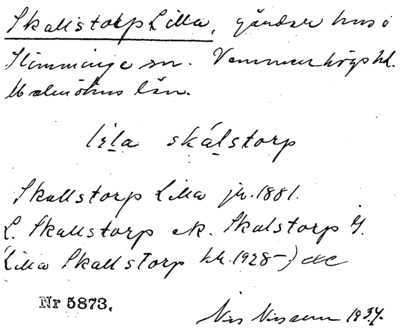 Skallstorp Lilla, gårdar hus i
Slimminge sn. Vemmenhögs hd.
Malmöhus län.
lila skálstorp
Skallstorp Lilla jb. 1881.
L. Skallstorp ek. Skalstorp
Lilla Skallstorp hk. 1928-)
Nr 5873.
Nils 1934.